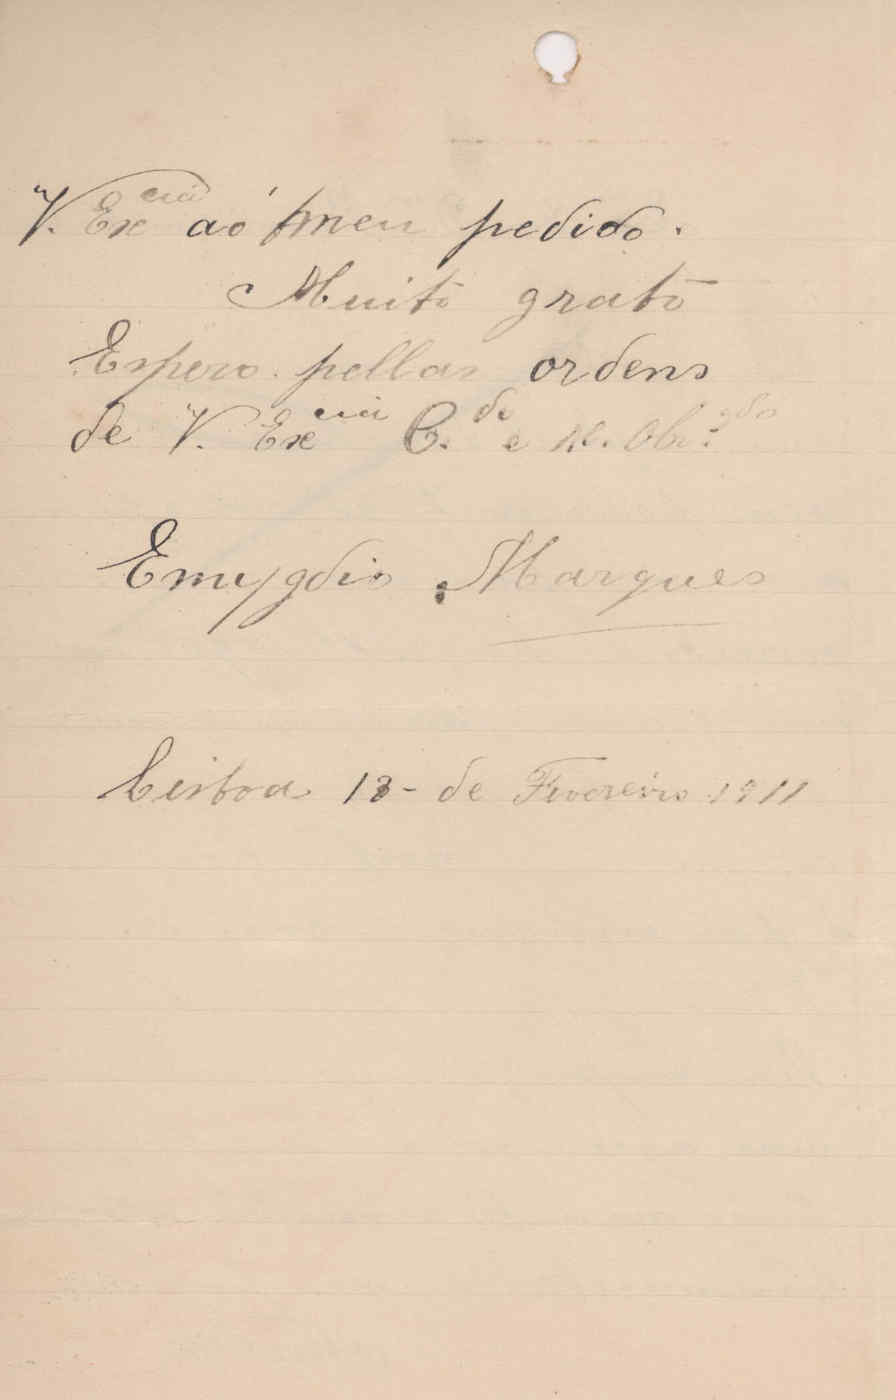 V. Ex.cia ao meu pedido.
Muito grato
Espero pellas ordens
de V. Excia C.do e M. Obr.gdo
Emygdio Marques
Lisboa 18- de Fevereiro 1911